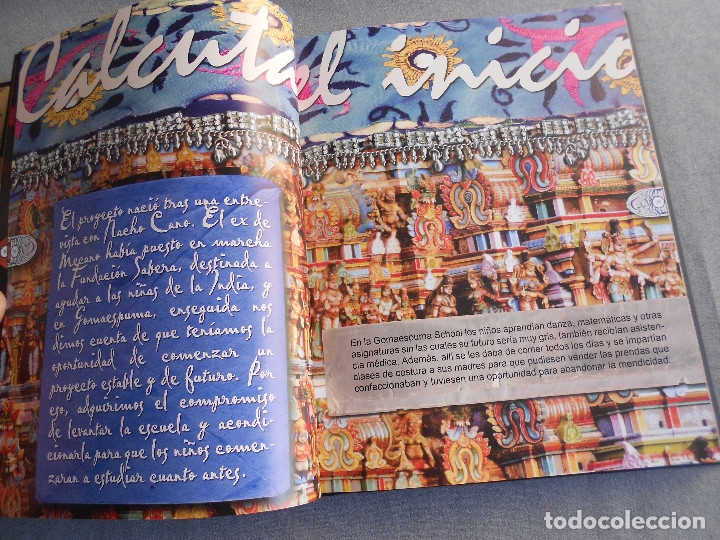 Calcuta el inicio
El proyecto nació tras una entre-
vista con Nacho Cano. El ex de
Mecano había puesto en marcha
la Fundación Sabera, destinada a
ayudar a las niñas de la India, y
en Gomaespuma, enseguida nos
dimos cuenta de que teníamos la
oportunidad de comenzar un
proyecto estable y de futuro. Por
eso, adquirimos el compromiso
de levantar la escuela y acondi-
cionarla para que los niños comen-
zaran a estudiar cuanto antes.
En la Gomaespuma School los niños aprendían danza, matemáticas y otras
asignaturas sin las cuales su futuro sería muy gris, también recibían asisten-
cia médica. Además, allí se les daba de comer todos los días y se impartían
clases de costura a sus madres para que pudiesen vender las prendas que
confeccionaban y tuviesen una oportunidad para abandonar la mendicidad.
todocoleccion.net